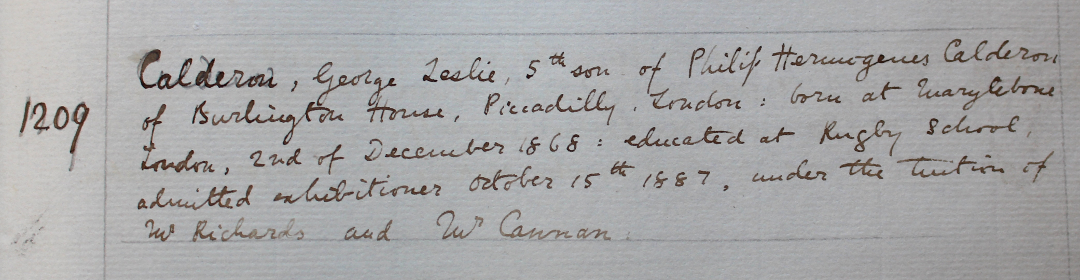 1209
Calderon, George Leslie, 5th son of Philip Hermogenes Calderon
of Burlington House, Piccadilly, London: born at Marylebone
London, 2nd of December 1868: educated at Rugby School,
admitted exhibitioner October 15th 1887, under the tuition of
Mr Richards and Mr Cannan.